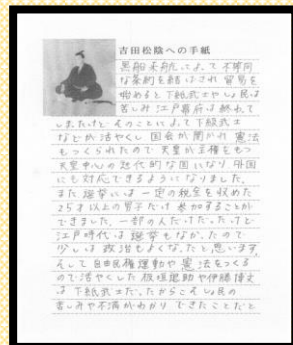 吉田松陰への手紙
黒船来航によって不平等
な条約を結ばされ貿易を
始めると下級武士やしょ民は
苦しみ江戸幕府は終わて
しまったけどそのことによって下級武士
などが活やくし国会が開かれ憲法
もつくられたので天皇が主権をもつ
天皇中心の近代的な国になり外国
にも対応できるようになりました。
また選挙には一定の税金を収めた
25才以上の男子だけ参加することが
できました。一部の人だけだったけど
江戸時代は選挙もなかったので
少しは政治もよくなったと思います。
そして自由民権運動や憲法をつくる
ので活やくした板垣退助や伊藤博文
は下級武士だったからこそしょ民の
苦しみや不満がわかりできたことだと